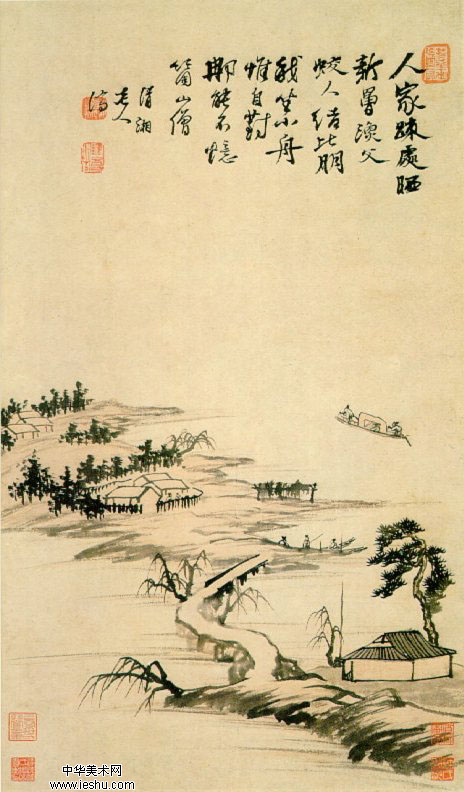 人家疎處晒
新罾漁父
蛟人結比朋
我坐小舟
惟自對
那能不憶
箇山僧
清湘
老人
濟
中华美术网
www.ieshu.com